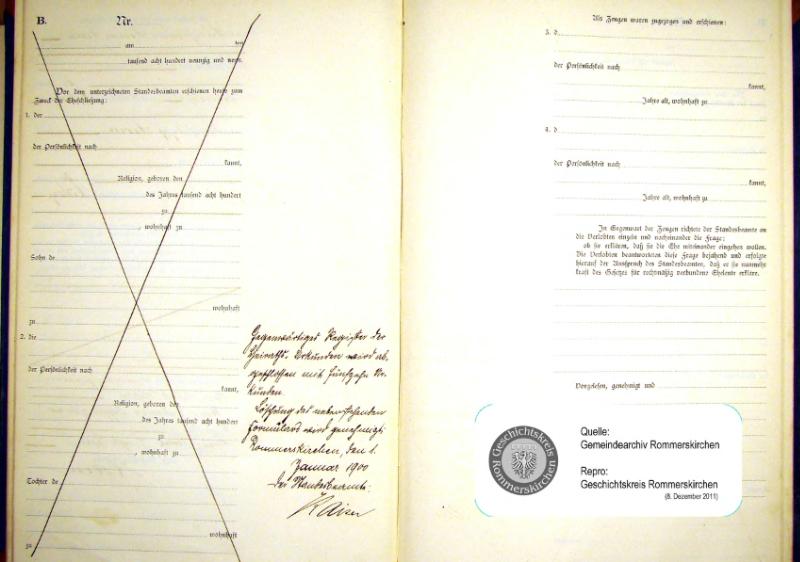 B. Nr.
am ten
tausend acht hundert neunzig und neun.
Vor dem unterzeichneten Standesbeamten erschienen heute zum
Zweck der Eheschließung:
1. der
der Persönlichkeit nach
kannt,
Religion, geboren den
des Jahres tausend acht hundert
zu
, wohnhaft zu
Sohn de
wohnhaft
zu
2. die
der Persönlichkeit nach
kannt,
Religion, geboren den
des Jahres tausend acht hundert
zu
, wohnhaft zu
Tochter de
wohnhaft
zu
Gegenwärtiges Register der
Heiraths-Urkunden wird ab-
geschlossen mit fünfzehn Ur-
kunden.
Löschung des nebenstehenden
Formulars wird genehmigt.
Rommerskirchen, den 1.
Januar 1900
Der Standesbeamte:
Kaiser
Als Zeugen waren zugezogen und erschienen:
3. d
der Persönlichkeit nach
kannt,
Jahre alt, wohnhaft zu
4. d
der Persönlichkeit nach
kannt,
Jahre alt, wohnhaft zu
In Gegenwart der Zeugen richtete der Standesbeamte an
die Verlobten einzeln und nacheinander die Frage:
ob sie erklären, daß sie die Ehe miteinander eingehen wollen.
Die Verlobten beantworteten diese Frage bejahend und erfolgte
hierauf der Ausspruch des Standesbeamten, daß er sie nunmehr
kraft des Gesetzes für rechtmäßig verbundene Eheleute erkläre.
Vorgelesen, genehmigt und
Geschichtskreis
Rommerskirchen
Quelle:
Gemeindearchiv Rommerskirchen
Repro:
Geschichtskreis Rommerskirchen
(8. Dezember 2011)